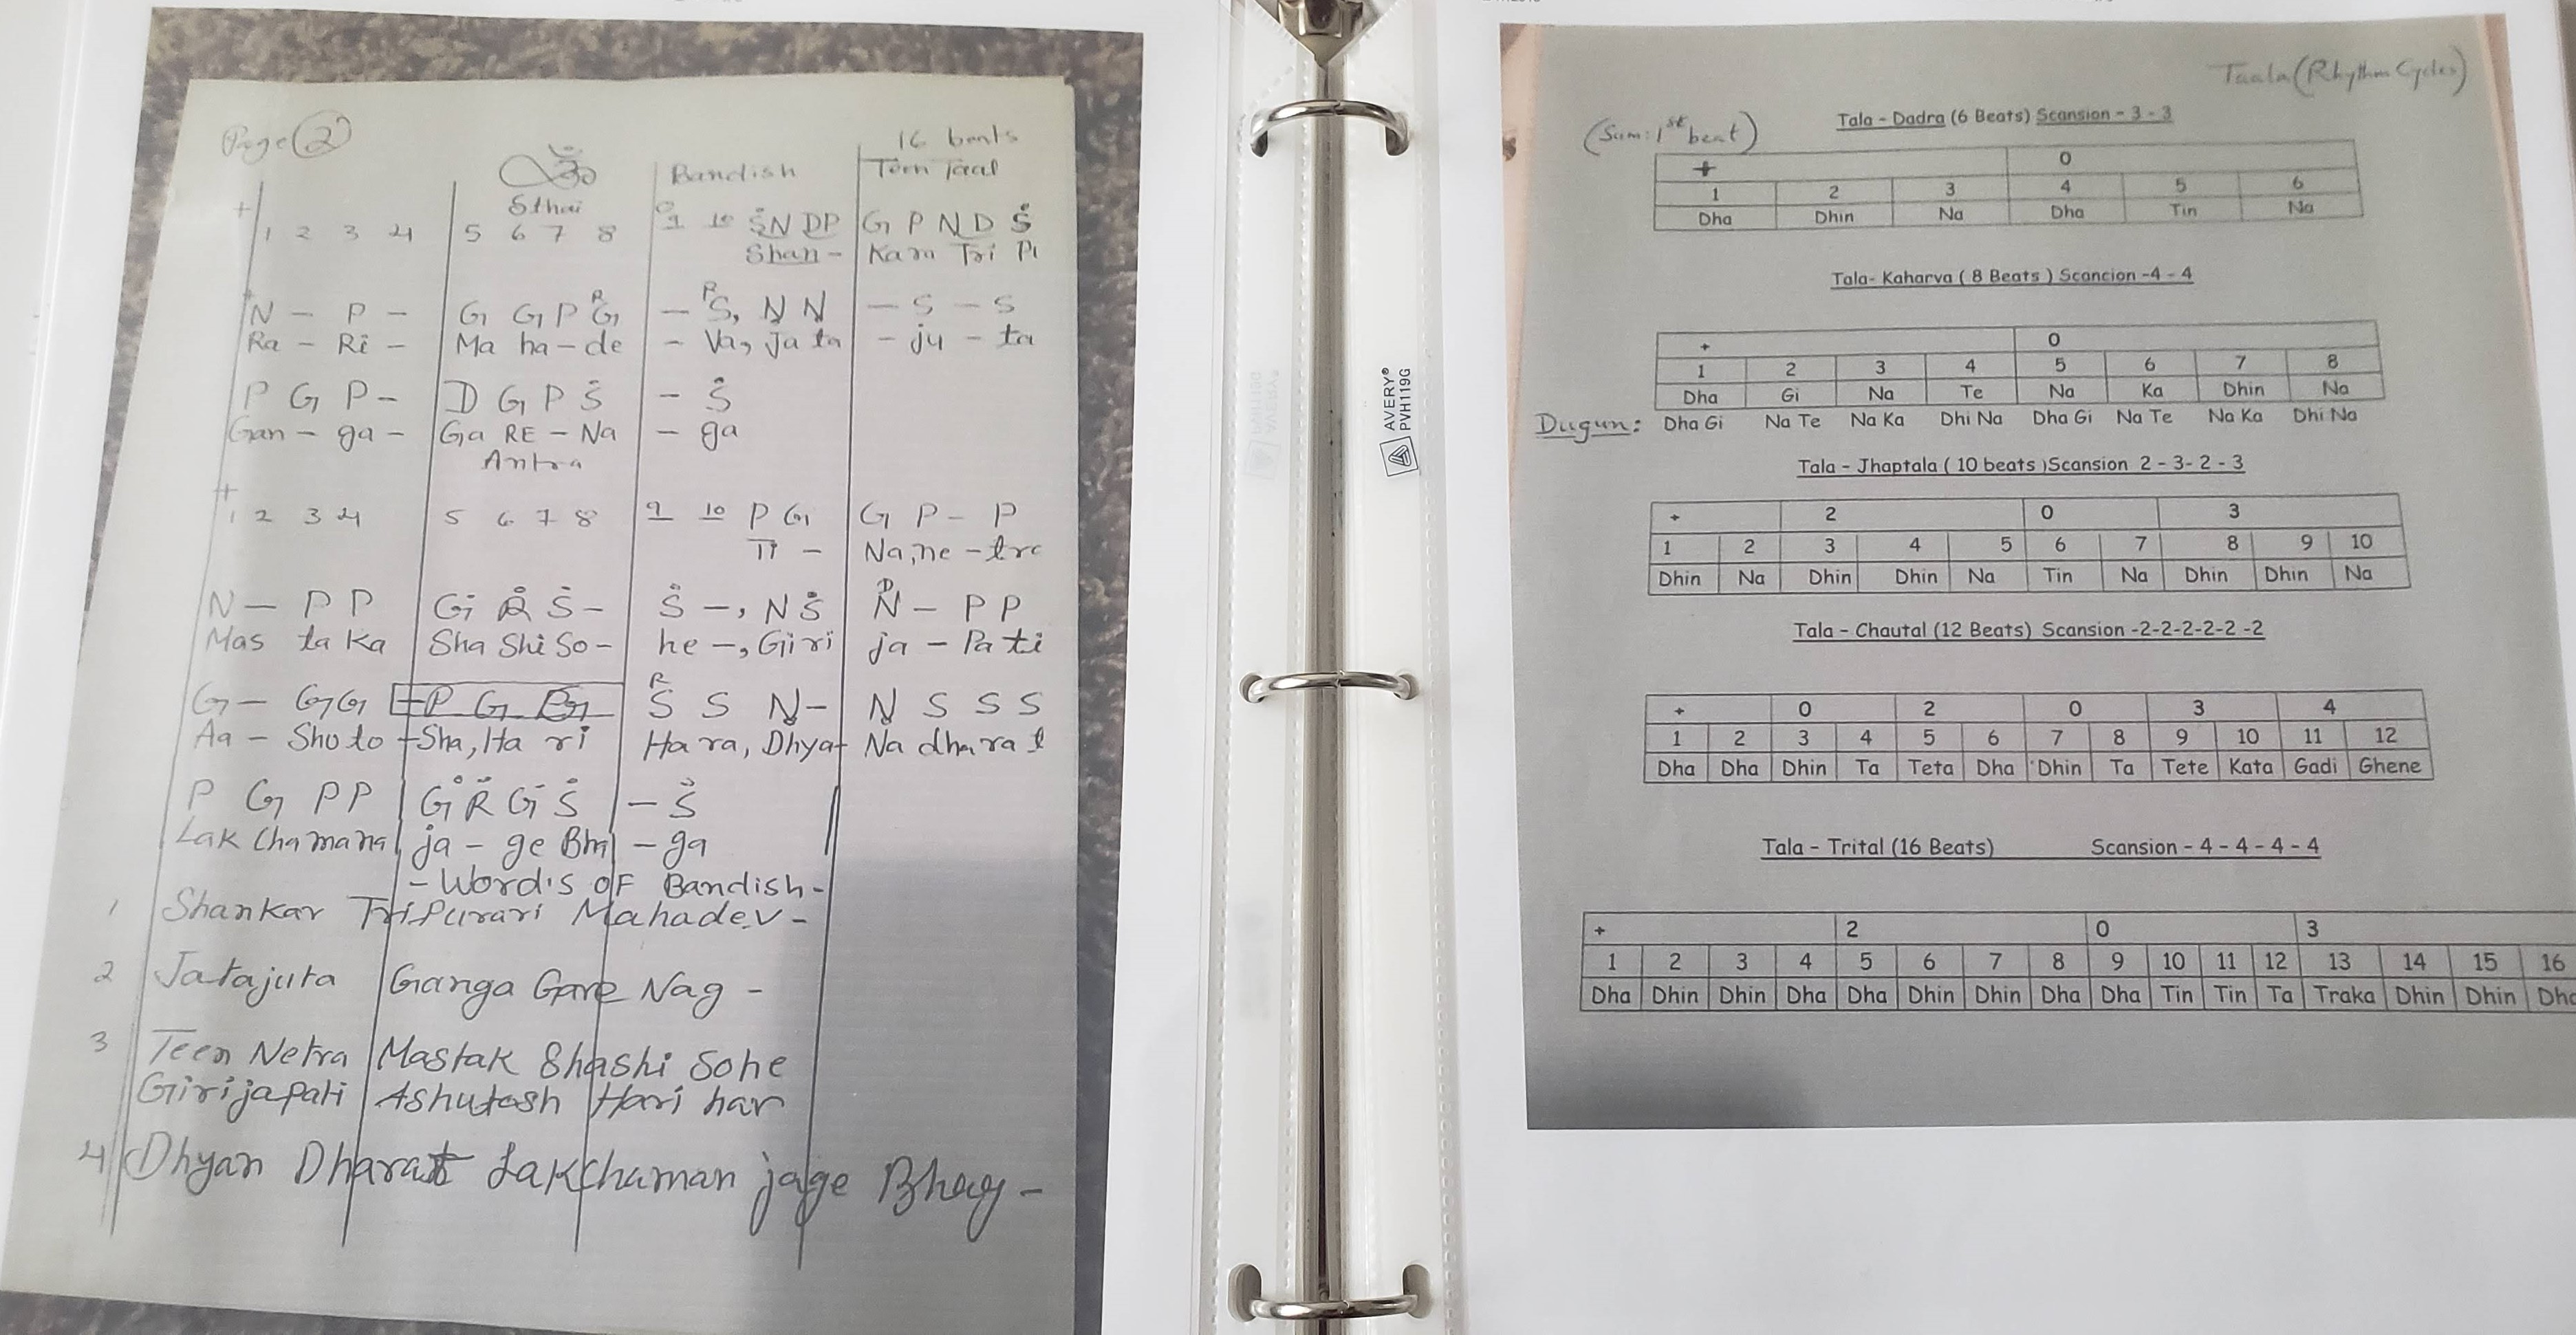 Page 2
16 beats
ॐ Bandish Teen Taal
Sthai
+ 0
1 2 3 4 5 6 7 8 9 10 ṠN DP G P N D Ṡ
Shan - Kara Tri Pu
+
N - P - G G P ᴿG - ᴿS, N N - S - S
Ra - Ri - Ma ha - de - Va, Ja ta - ju - ta
P G P - D G P Ṡ - Ṡ
Gan - ga - Ga RE - Na - ga
Antra
+
1 2 3 4 5 6 7 8 9 10 P G G P - P
Ti - Na, ne - tra
N - P P Ġ Ṙ Ṡ - Ṡ -, N Ṡ ᴰN - P P
Mas ta Ka Sha Shi So - he -, Gi ri ja - Pa ti
G - G G - P G RG ᴿS S Ṇ - Ṇ S S S
Aa - Shu to - Sha, Ha ri Ha ra, Dhya - Na dha ra t
P G P P Ġ Ṙ Ġ Ṡ - Ṡ
Lak Cha mana ja - ge Bha - ga
- Word's OF Bandish -
1 Shankar TriPurari Mahadev -
2 Jatajuta Ganga Gare Nag -
3 Teen Netra Mastak Shashi Sohe
Girijapati Ashutosh Hari har
4 Dhyan Dharat Lakchaman jage Bhag -
AVERY®
PVH119G
Taala (Rhythm Cycles)
(Sum: 1st beat)
Tala - Dadra (6 Beats) Scansion - 3 - 3
+ 0
1 2 3 4 5 6
Dha Dhin Na Dha Tin Na
Tala- Kaharva ( 8 Beats ) Scancion -4 - 4
+ 0
1 2 3 4 5 6 7 8
Dha Gi Na Te Na Ka Dhin Na
Dugun: Dha Gi Na Te Na Ka Dhi Na Dha Gi Na Te Na Ka Dhi Na
Tala - Jhaptala ( 10 beats )Scansion 2 - 3- 2 - 3
+ 2 0 3
1 2 3 4 5 6 7 8 9 10
Dhin Na Dhin Dhin Na Tin Na Dhin Dhin Na
Tala - Chautal (12 Beats) Scansion -2-2-2-2-2 -2
+ 0 2 0 3 4
1 2 3 4 5 6 7 8 9 10 11 12
Dha Dha Dhin Ta Teta Dha Dhin Ta Tete Kata Gadi Ghene
Tala - Trital (16 Beats) Scansion - 4 - 4 - 4 - 4
+ 2 0 3
1 2 3 4 5 6 7 8 9 10 11 12 13 14 15 16
Dha Dhin Dhin Dha Dha Dhin Dhin Dha Dha Tin Tin Ta Traka Dhin Dhin